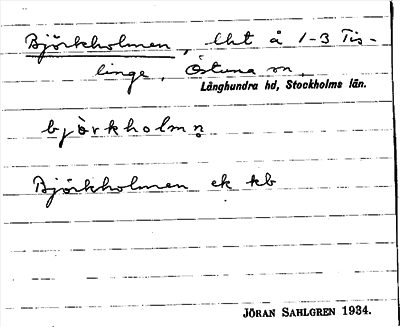 Björkholmen, lht å 1-3 Tis-
linge, Östuna sn,
Långhundra hd, Stockholms län.
bjö̀rkholmn̥
Björkholmen ek kb
JÖRAN SAHLGREN 1934.